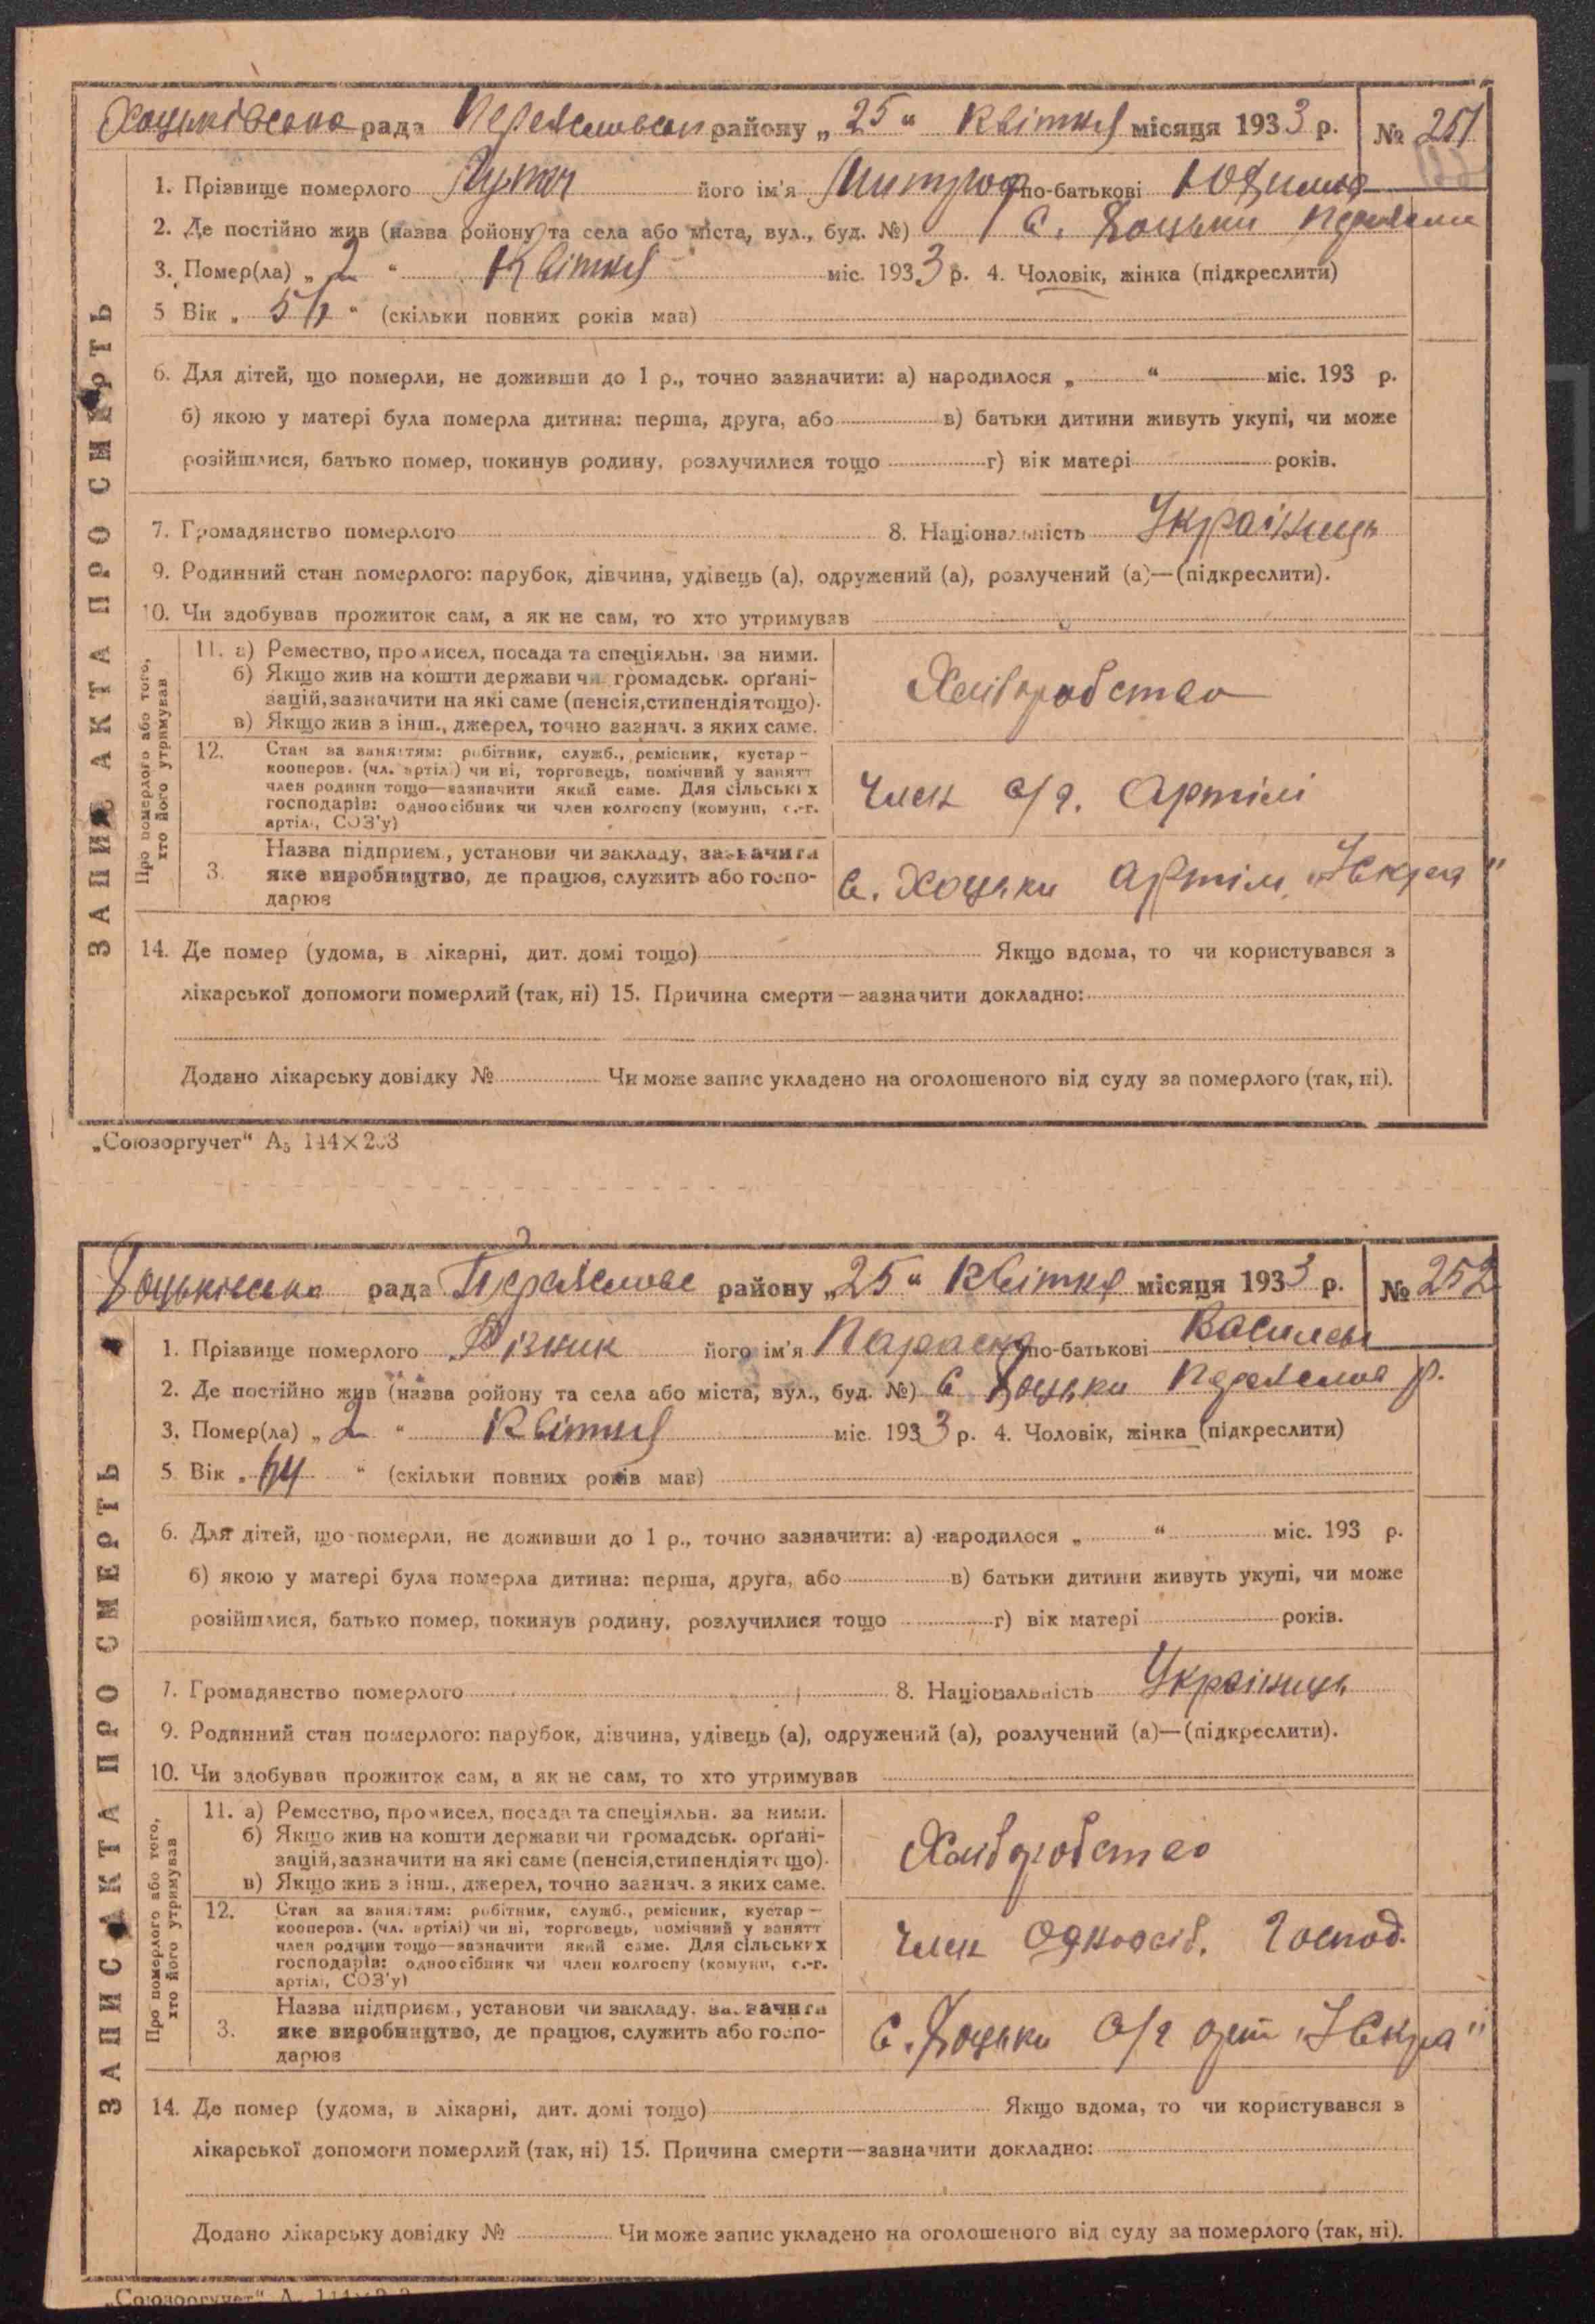 Хоцьківська рада Переяславськ району „25“ Квітня місяця 1933 р. № 251
1. Прізвище померлого його ім'я по-батькові Юхимов
2. Де постійно жив (назва ройону та села або міста, вул., буд. №) с. Хоцьки Переяслав
3. Помер(ла) „2“ Квітня міс. 1933 р. 4. Чоловік, жінка (підкреслити)
5 Вік „ “ (скільки повних років мав)
6. Для дітей, що померли, не доживши до 1 р., точно зазначити: а) народилося „ “ міс. 193 р.
б) якою у матері була померла дитина: перша, друга, або в) батьки дитини живуть укупі, чи може
розійшлися, батько помер, покинув родину, розлучилися тощо г) вік матері років.
7. Громадянство померлого 8. Національність Українць
9. Родинний стан померлого: парубок, дівчина, удівець (а), одружений (а), розлучений (а)—(підкреслити).
10. Чи здобував прожиток сам, а як не сам, то хто утримував
ЗАПИС АКТА ПРО СМЕРТЬ
Про померлого або того,
хто його утримував
11. а) Ремество, промисел, посада та спеціяльн. за ними.
б) Якщо жив на кошти держави чи громадськ. орґані-
зацій, зазначити на які саме (пенсія, стипендія тощо).
в) Якщо жив з інш., джерел, точно зазнач. з яких саме.
Хліборобство
12. Стан за заняттям: робітник, служб., ремісник, кустар—
кооперов. (чл. артілі) чи ні, торговець, помічний у занятт
член родини тощо—зазначити який саме. Для сільських
господарів: одноосібник чи член колгоспу (комуни, с.-г.
артілі, СОЗ'у)
Член с/г. Артілі
3. Назва підприєм., установи чи закладу, зазначити
яке виробництво, де працює, служить або госпо-
дарює
с. Хоцьки Артіль „Іскра“
14. Де помер (удома, в лікарні, дит. домі тощо) Якщо вдома, то чи користувався з
лікарської допомоги померлий (так, ні) 15. Причина смерти—зазначити докладно:
Додано лікарську довідку № Чи може запис укладено на оголошеного від суду за померлого (так, ні).
„Союзоргучет“ А5 144×203
Хоцьківська рада Переяслав району „25“ Квітня місяця 1933 р. № 252
1. Прізвище померлого Різник його ім'я Параска по-батькові Василев
2. Де постійно жив (назва ройону та села або міста, вул., буд. №) с Хоцьки Переяслав р.
3. Помер(ла) „2“ Квітня міс. 1933 р. 4. Чоловік, жінка (підкреслити)
5 Вік „64“ (скільки повних років мав)
6. Для дітей, що померли, не доживши до 1 р., точно зазначити: а) народилося „ “ міс. 193 р.
б) якою у матері була померла дитина: перша, друга, або в) батьки дитини живуть укупі, чи може
розійшлися, батько помер, покинув родину, розлучилися тощо г) вік матері років.
7. Громадянство померлого 8. Національність Українць
9. Родинний стан померлого: парубок, дівчина, удівець (а), одружений (а), розлучений (а)—(підкреслити).
10. Чи здобував прожиток сам, а як не сам, то хто утримував
ЗАПИС АКТА ПРО СМЕРТЬ
Про померлого або того,
хто його утримував
11. а) Ремество, промисел, посада та спеціяльн. за ними.
б) Якщо жив на кошти держави чи громадськ. орґані-
зацій, зазначити на які саме (пенсія, стипендія тощо).
в) Якщо жив з інш., джерел, точно зазнач. з яких саме.
Хліборобство
12. Стан за заняттям: робітник, служб., ремісник, кустар—
кооперов. (чл. артілі) чи ні, торговець, помічний у занятт
член родини тощо—зазначити який саме. Для сільських
господарів: одноосібник чи член колгоспу (комуни, с.-г.
артілі, СОЗ'у)
Член Одноосіб. Господ.
3. Назва підприєм., установи чи закладу. зазначити
яке виробництво, де працює, служить або госпо-
дарює
с. Хоцьки с/г арт „Іскра“
14. Де помер (удома, в лікарні, дит. домі тощо) Якщо вдома, то чи користувався з
лікарської допомоги померлий (так, ні) 15. Причина смерти—зазначити докладно:
Додано лікарську довідку № Чи може запис укладено на оголошеного від суду за померлого (так, ні).
„Союзоргучет“ А